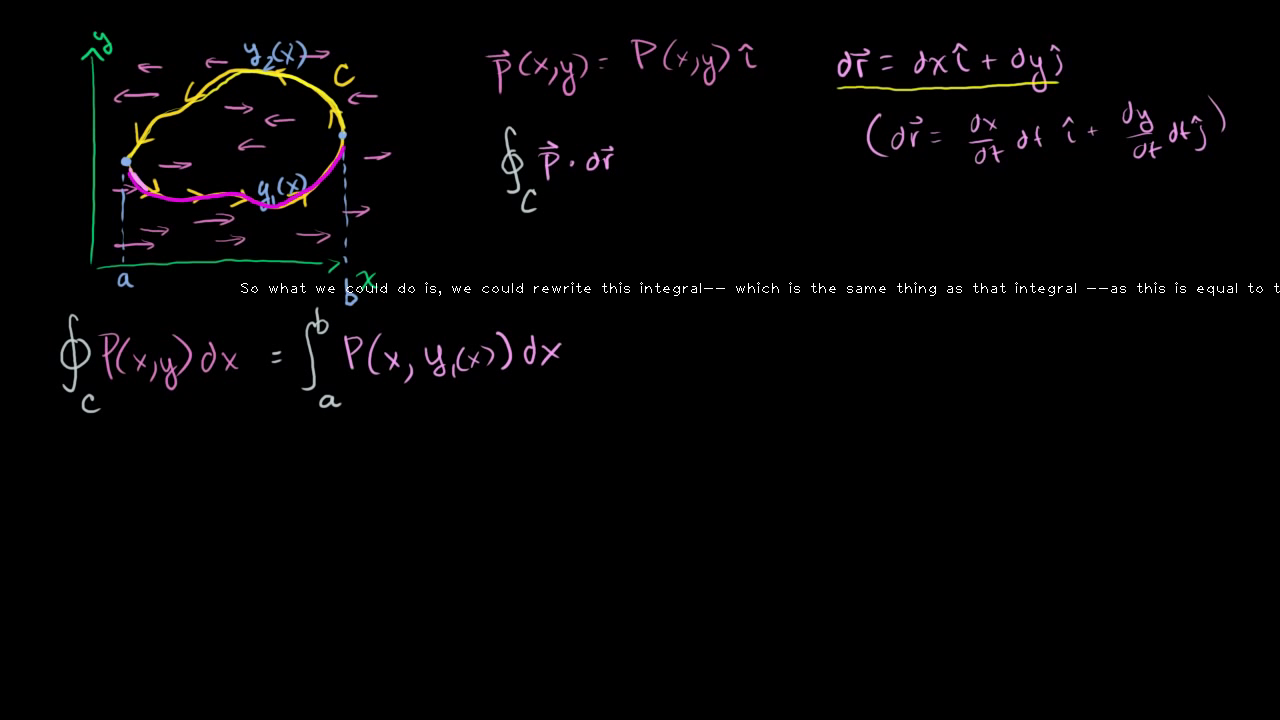 y
y₂(x)
C
y₁(x)
a
b
x
p⃗(x,y) = P(x,y) î
∮_C p⃗ · dr⃗
dr⃗ = dx î + dy ĵ
(dr⃗ = dx/dt dt î + dy/dt dt ĵ)
So what we could do is, we could rewrite this integral-- which is the same thing as that integral --as this is equal to t
∮_C P(x,y) dx = ∫_a^b P(x, y₁(x)) dx